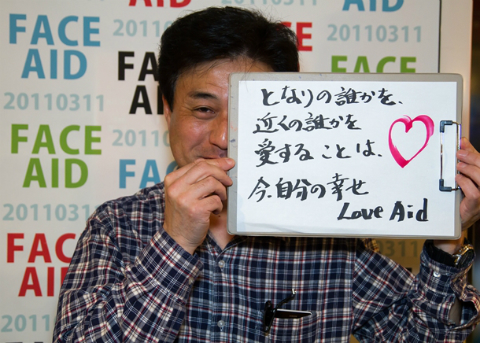 FACE AID
20110311
FACE AID
20110311
FACE AID
20110311
FACE AID
20110311
FACE AID
20110311
となりの誰かを、
近くの誰かを
愛することは、
今、自分の幸せ
Love Aid